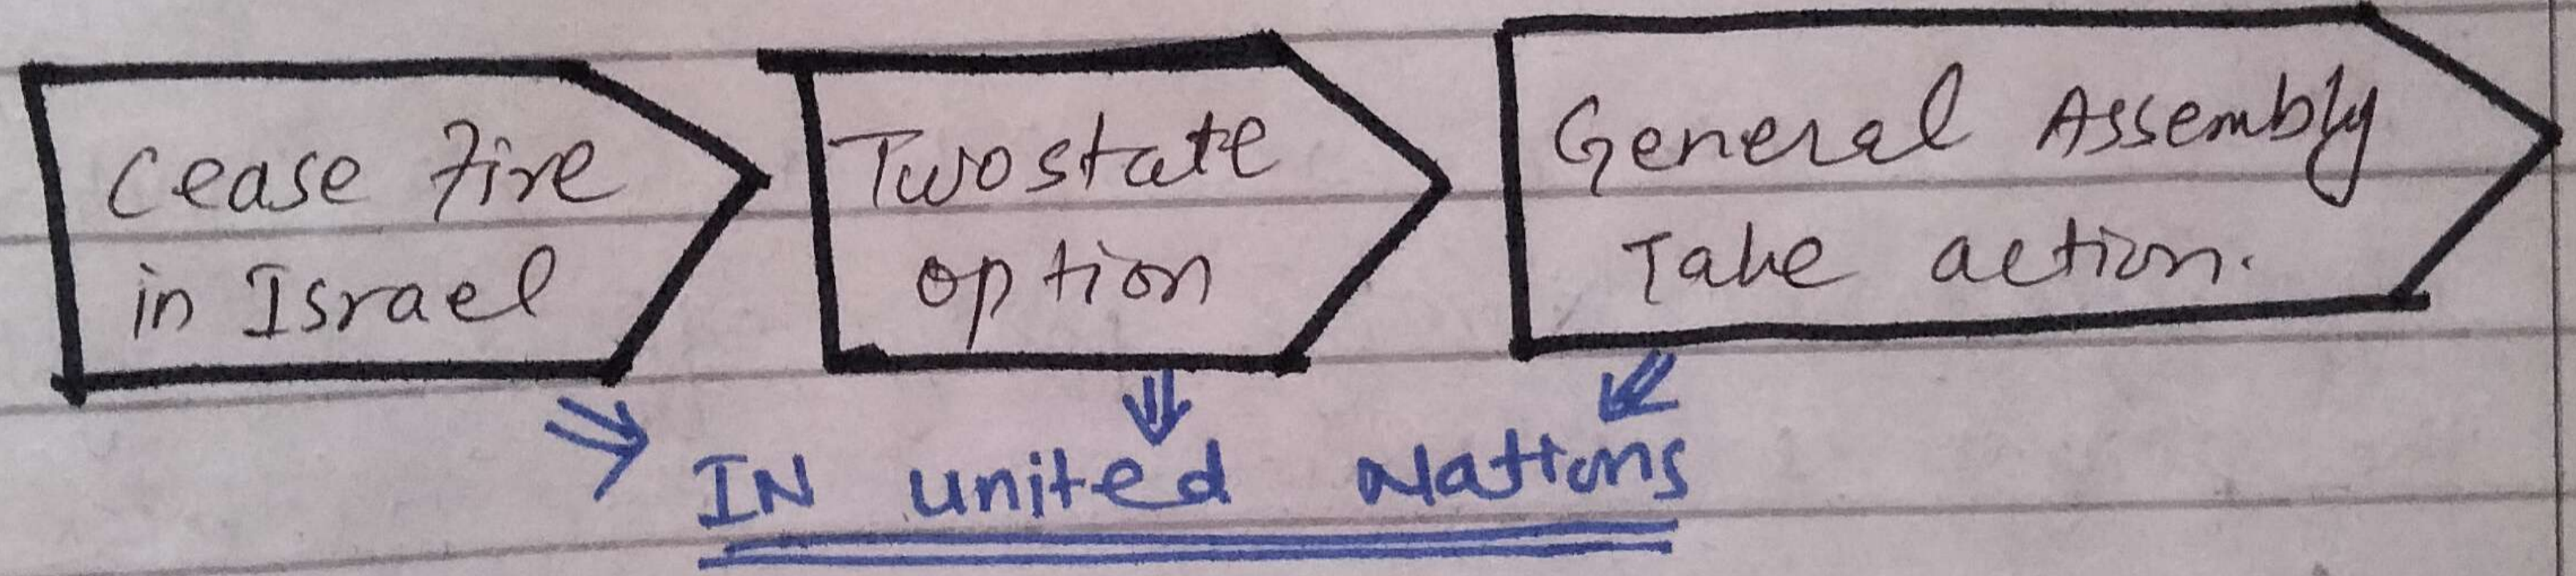 Cease Fire
in Israel
Two state
option
General Assembly
Take action.
IN united Nations